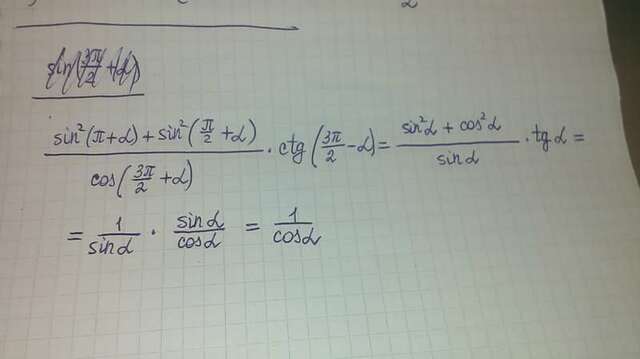 sin(3π/2 + α)
(sin²(π+α) + sin²(π/2 + α)) / cos(3π/2 + α) · ctg(3π/2 - α) = (sin²α + cos²α) / sinα · tgα =
= 1/sinα · sinα/cosα = 1/cosα